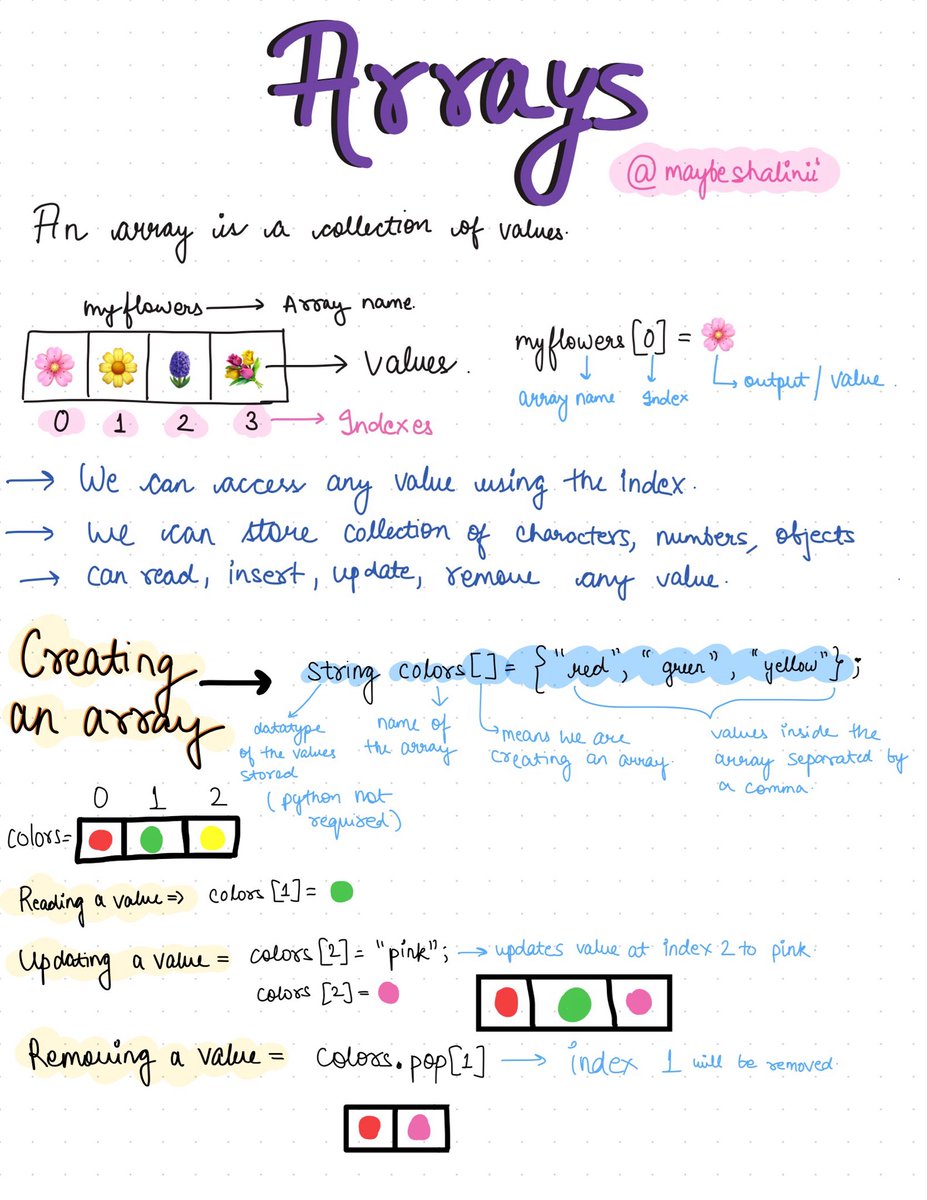 Arrays
@maybeshalinii
An array is a collection of values.
myflowers → Array name.
→ Values.
0 1 2 3 → Indexes
myflowers [0] =
array name
Index
output / value.
→ We can access any value using the index.
→ We can store collection of characters, numbers, objects
→ can read, insert, update, remove any value.
Creating
an array
→ String colors[] = {"red", "green", "yellow"};
datatype
of the values
stored
(python not
required)
name of
the array
means we are
creating an array.
values inside the
array separated by
a comma.
0 1 2
colors=
Reading a value => colors [1] =
Updating a value = colors [2] = "pink"; → updates value at index 2 to pink.
colors [2] =
Removing a value = colors.pop[1] → index 1 will be removed.